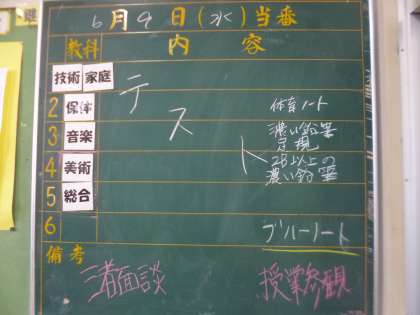 6月9日(水)当番
教科 内容
技術 家庭
2 保体 体育ノート
3 音楽 濃い鉛筆
定規
4 美術 2B以上の
濃い鉛筆
5 総合
テスト
6 ブルーノート
備考
三者面談 授業参観